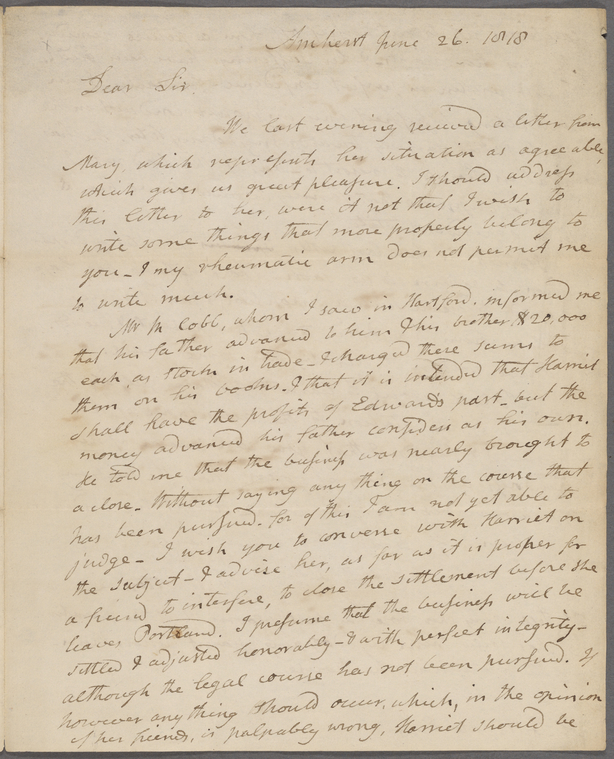 Amherst June 26. 1818
Dear Sir.
We last evening received a letter from
Mary which represents her situation as agreeable,
which gives us great pleasure. I should address
this letter to her, were it not that I wish to
write some things that more properly belong to
you_ & my rheumatic arm does not permit me
to write much.
Mr M Cobb, whom I saw in Hartford, informed me
that his father advanced to him & his brother, $20,000
each, as Stock in trade_ & charged these sums to
them on his books_ & that it is intended that Harriet
shall have the profits of Edwards part, but the
money advanced his father considers as his own.
He told me that the business was nearly brought to
a close_ Without saying any thing on the course that
has been pursued, for of this I am not yet able to
judge_ I wish you to converse with Harriet on
the subject_ & advise her, as far as it is proper for
a friend to interfere, to close the settlement before she
leaves Portland. I presume that the business will be
settled & adjusted honorably_ & with perfect integrity_
although the legal course has not been pursued. If
however any thing should occur, which, in the opinion
of her friends, is palpably wrong, Harriet should be